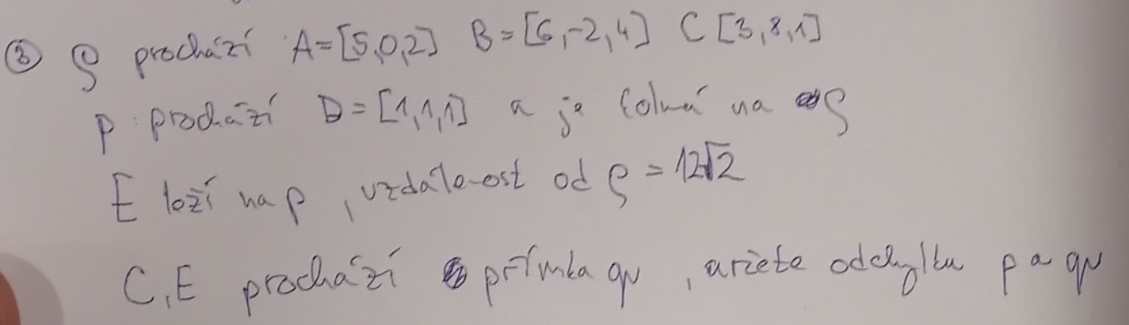 ③ ρ prochází A=[5,0,2] B=[6,-2,4] C[3,8,1]
p prochází D=[1,1,1] a je kolmá na ρ
E leží na p, vzdálenost od ρ = 12√2
C,E prochází přímka q, určete odchylku p a q